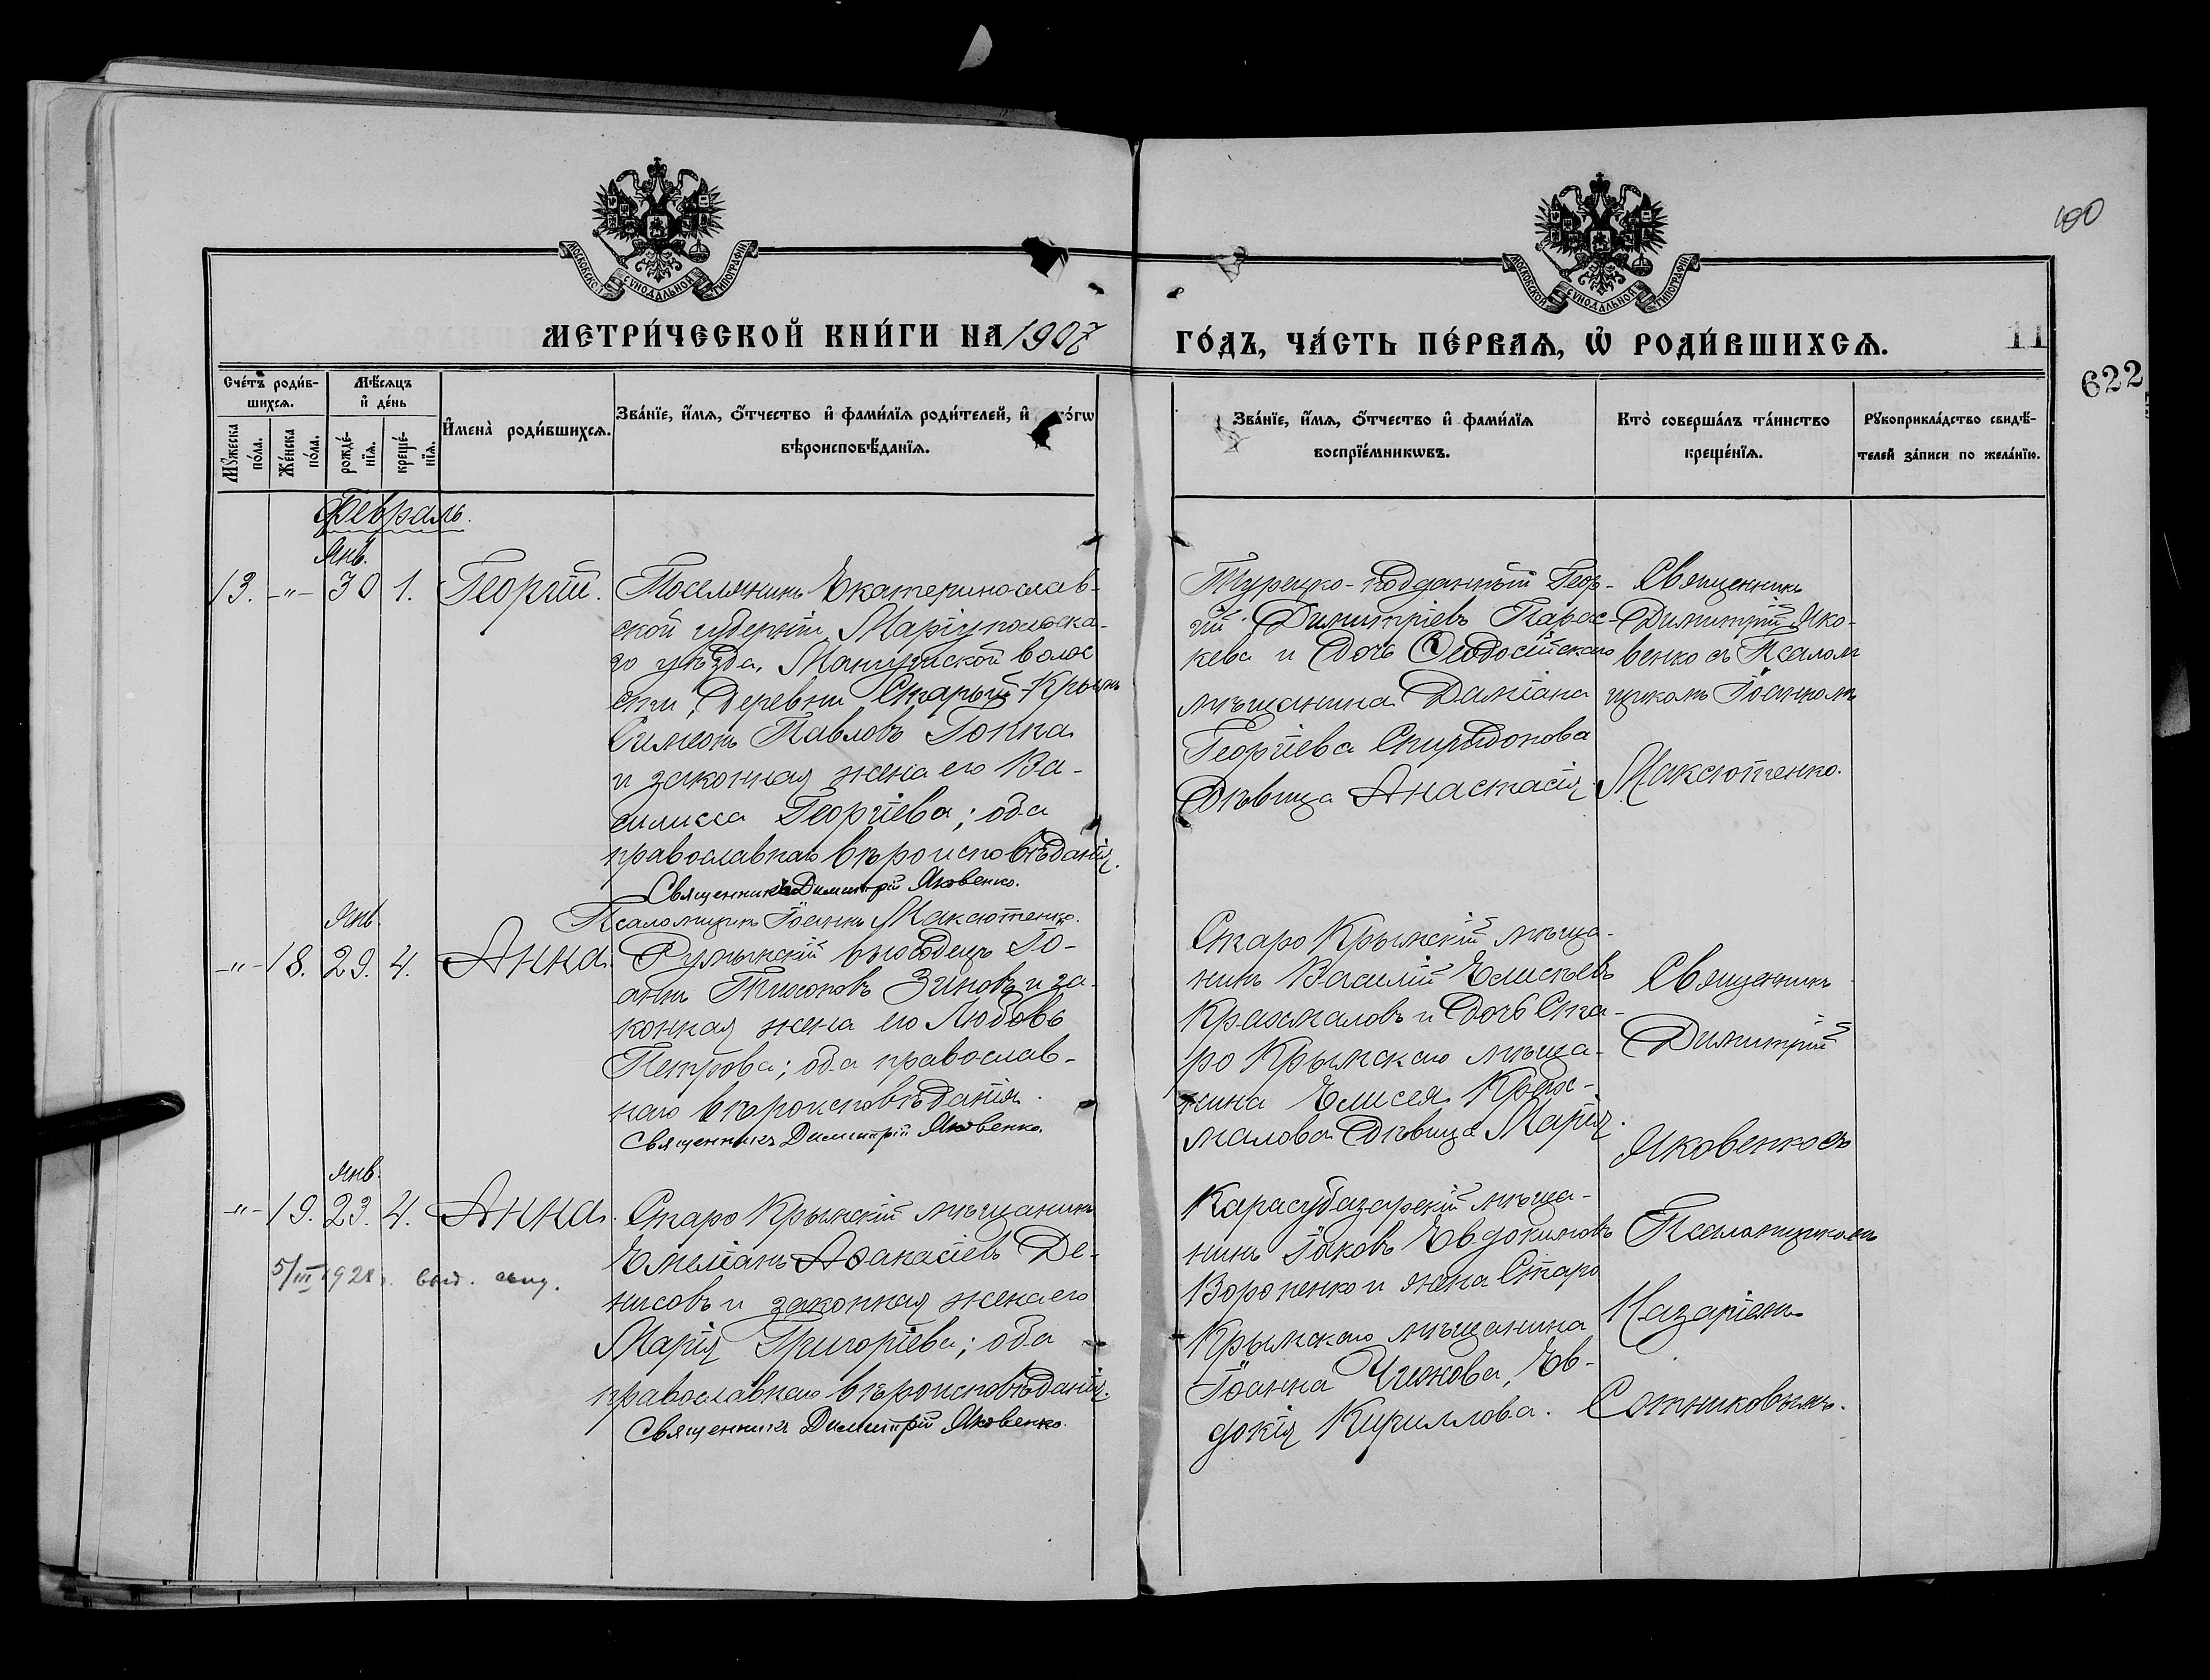 100
МОСКОВСКОЙ СѴНОДАЛЬНОЙ ТИПОГРАФІИ
МОСКОВСКОЙ СѴНОДАЛЬНОЙ ТИПОГРАФІИ
МЕТРИ́ЧЕСКОЙ КНИ́ГИ НА 1907
ГО́ДЪ, ЧА́СТЬ ПЕ́РВАѦ, Ѡ҆ РОДИ́ВШИХСѦ.
11
622
Сче́тъ роди́в-
шихсѧ.
Мѣ́сѧцъ
и҆ де́нь
Мꙋ́жеска
по́ла.
Же́нска
по́ла.
рожде́-
нїѧ.
креще́-
нїѧ.
И҆мена̀ роди́вшихсѧ.
Зва́нїе, и҆́мѧ, ѻ҆́тчество и҆ фами́лїѧ роди́телей, и҆ то́гѡ
вѣроисповѣ́данїѧ.
Зва́нїе, и҆́мѧ, ѻ҆́тчество и҆ фами́лїѧ
воспрїе́мникѡвъ.
Кто̀ соверша́лъ та́инство
креще́нїѧ.
Рꙋкоприкла́дство свидѣ́-
телей за́писи по жела́нїю.
Февраль.
Янв.
13. -"- 30 1. Георгій.
Поселянинъ Екатеринослав-
ской губерніи, Маріупольска-
го уѣзда, Мангушской волос
сти, деревни Старый-Крымъ
Симеонъ Павловъ Гонна
и законная жена его Ва-
силисса Георгіева; оба
православнаго вѣроисповѣданія.
Священникъ Димитрій Яковенко.
Псаломщикъ Іоаннъ Максютенко.
Турецко-подданный Геор-
гій Димитріевъ Парас-
кева и дочь Ѳеодосійскаго
мѣщанина Даміана
Георгіева Спиридонова
дѣвица Анастасія.
Священникъ
Димитрій Яко-
венко съ Псалом
щикомъ Іоанномъ
Максютенко.
Янв.
-"- 18. 29. 4. Анна.
Румынскій выходецъ Іо-
аннъ Тихоновъ Зиновъ и за-
конная жена его Любовь
Петрова; оба православ-
наго вѣроисповѣданія.
Священникъ Димитрій Яковенко.
Старо Крымскій мѣща-
нинъ Василій Елисѣевъ
Крахмаловъ и дочь Ста-
ро Крымскаго мѣща-
нина Елисея Крах-
малова дѣвица Марія.
Священникъ
Димитрій
Яковенко съ
Псаломщикомъ
Назаріемъ
Сотниковымъ.
Янв.
-"- 19. 23. 4. Анна.
5/III 1928 г. выд. свид.
Старо Крымскій мѣщанинъ
Емеліанъ Аѳанасіевъ Де-
нисовъ и законная жена его
Марія Григоріева; оба
православнаго вѣроисповѣданія.
Священникъ Димитрій Яковенко.
Карасубазарскій мѣща-
нинъ Іаковъ Евдокимовъ
Вороненко и жена Старо
Крымскаго мѣщанина
Іоанна Чижова, Ев-
докія Кириллова.